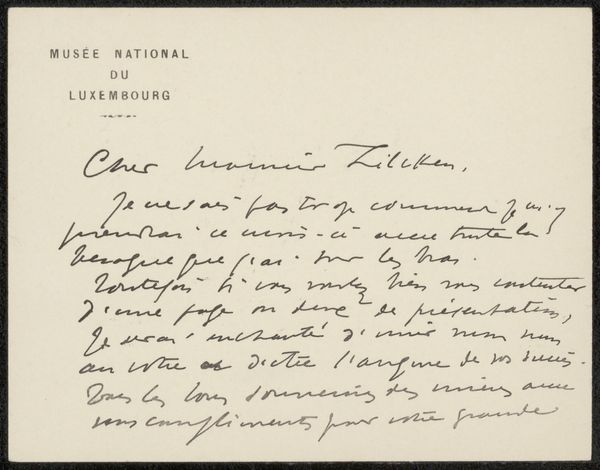 MUSÉE NATIONAL
DU
LUXEMBOURG
Cher Monsieur Zilcken,
Je ne sais pas trop comment je m'y
prendrai ce mois-ci avec toute la
besogne que j'ai sur les bras.
Toutefois si vous voulez bien vous contenter
d'une page ou deux de présentation,
je serai enchanté d'unir mon nom
au vôtre et d'être l'augure de vos succès.
Tous les bons souvenirs des miens avec
mes compliments pour votre grande